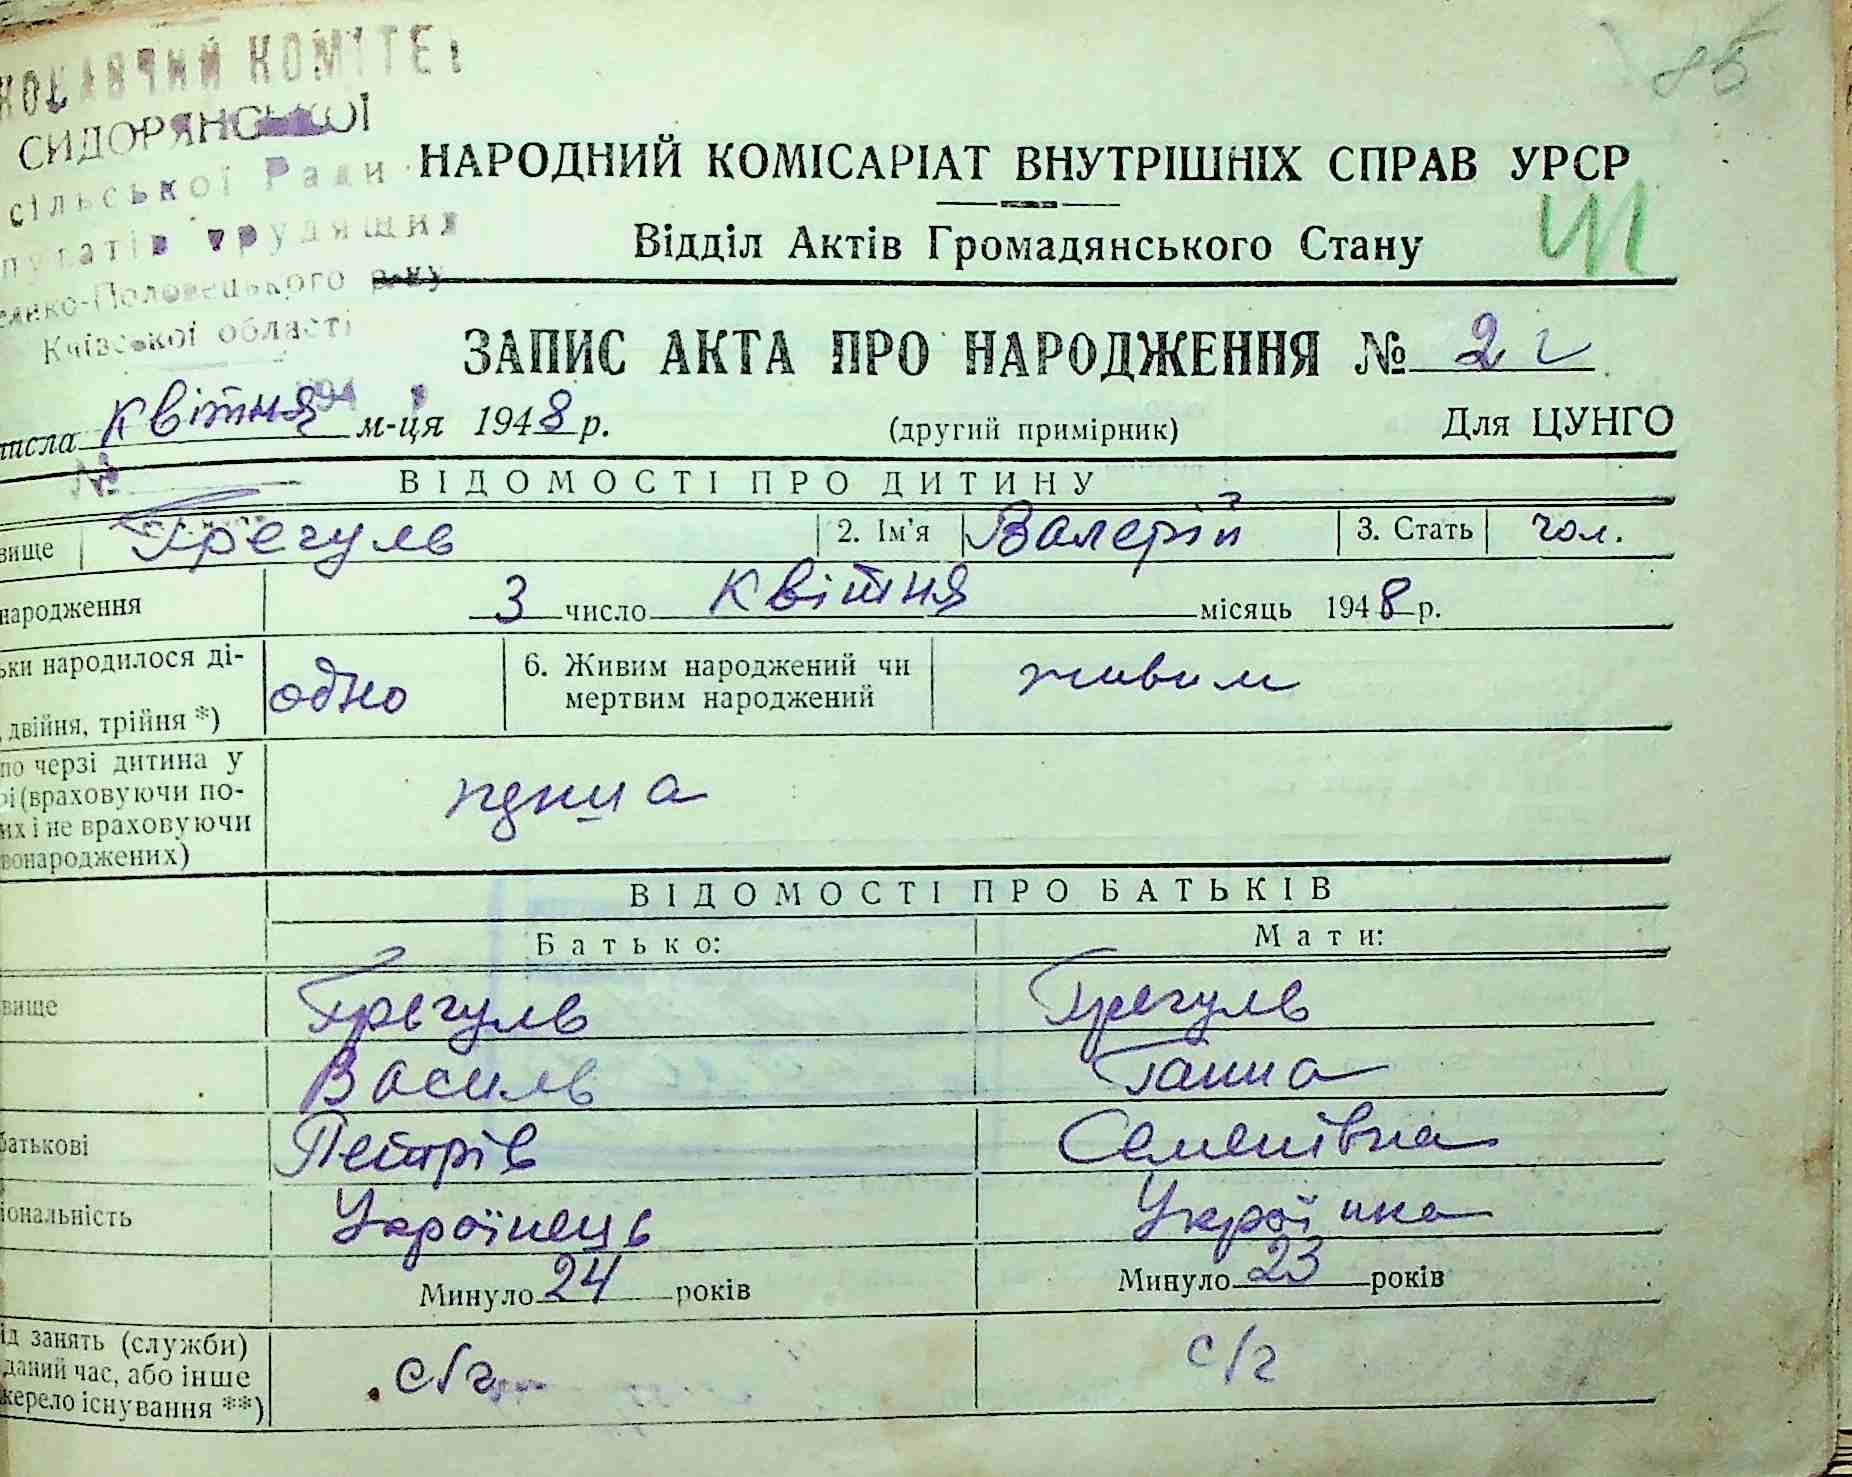 85
КОНАВЧИЙ КОМІТЕТ
СИДОРЯНСЬКОЇ
сільської Ради
путатів трудящих
елико-Половецького р-ну
Київської області
194
№
НАРОДНИЙ КОМІСАРІАТ ВНУТРІШНІХ СПРАВ УРСР
Відділ Актів Громадянського Стану
ЗАПИС АКТА ПРО НАРОДЖЕННЯ № 2
числа квітня м-ця 1948 р. (другий примірник) Для ЦУНГО
ВІДОМОСТІ ПРО ДИТИНУ
вище Грегуль 2. Ім'я Валерій 3. Стать чол.
народження 3 число квітня місяць 1948 р.
ьки народилося ді-
, двійня, трійня *) одно 6. Живим народжений чи мертвим народжений живим
по черзі дитина у
рі (враховуючи по-
их і не враховуючи
вонароджених)
ВІДОМОСТІ ПРО БАТЬКІВ
Батько: Мати:
вище Грегуль Грегуль
Василь Ганна
батькові Петрів Семенівна
іональність Українець Українка
Минуло 24 років Минуло 23 років
ід занять (служби)
даний час, або інше
жерело існування **) с/г с/г